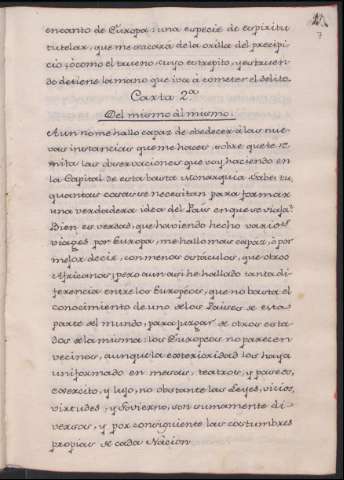 7
encanto de Europa: una especie de espiritu
tutelar, que me sacará de la orilla del precipi-
cio; ò como el trueno, cuyo estrepito, y estruen-
do detiene la mano que iva à cometer el delito.
Carta 2ª
Del mismo al mismo.
Aun no me hallo capaz de obedecer à las nue-
vas instancias que me haces, sobre que te re-
mita las observaciones que voy haciendo en
la Capital de esta basta Monarquia. Sabes tu,
quantas cosas se necesitan para formar
una verdadera idea del País en que se viaja?
Bien es verdad, que haviendo hecho varios
viages por Europa, me hallo mas capaz, ò por
mejor decir, con menos ostáculos, que otros
Africanos; pero aun asi he hallado tanta di-
ferencia entre los Européos, que no basta el
conocimiento de uno de los Países de esta
parte del mundo, para juzgar de otros esta-
dos de la misma: los Européos no parecen
vecinos, aunque la exterioridad los haya
uniformado en mesas, teatros, y paseos,
exercito, y lujo, no obstante las Leyes, vicios,
virtudes, y Govierno, son sumamente di-
versos, y por consiguiente las costumbres
propias de cada Nacion